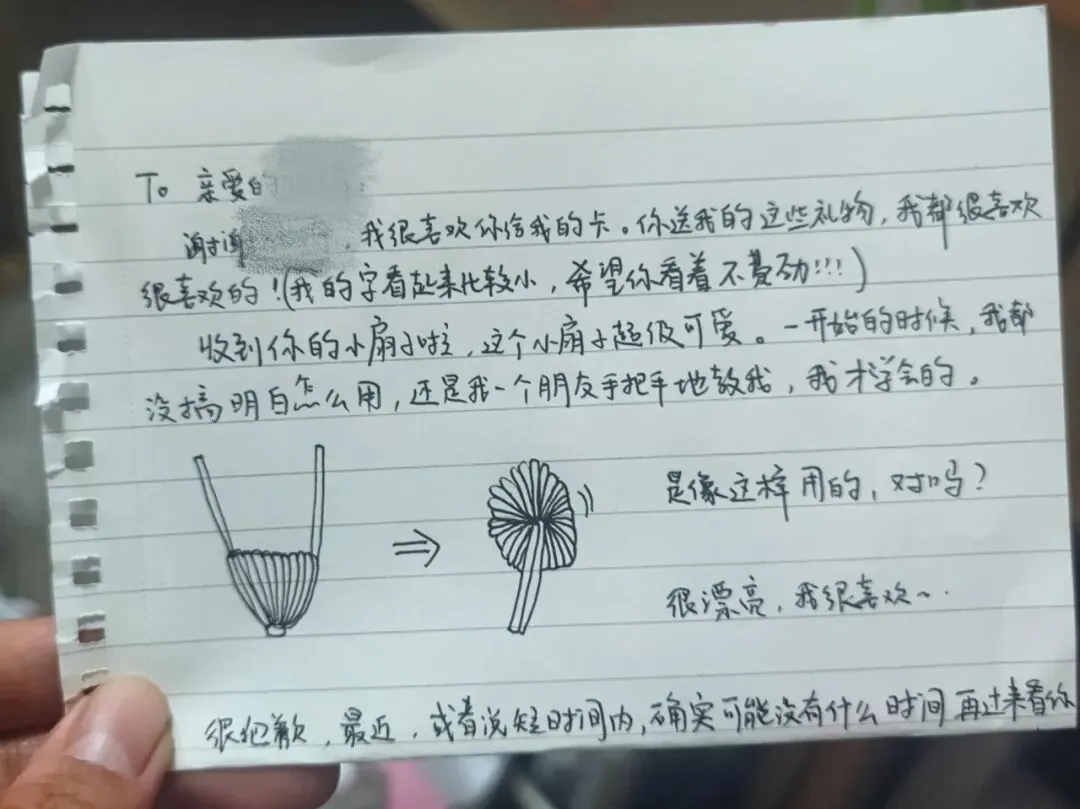 To 亲爱的
谢谢 , 我很喜欢你给我的卡。你送我的这些礼物, 我都很喜欢
很喜欢的!(我的字看起来比较小, 希望你看着不费劲!!!)
收到你的小扇子啦, 这个小扇子超级可爱。一开始的时候, 我都
没搞明白怎么用, 还是我一个朋友手把手地教我, 我才学会的。
是像这样用的, 对吗?
很漂亮, 我很喜欢~
很抱歉, 最近, 或者说短时间内, 确实可能没有什么时间再过来看你